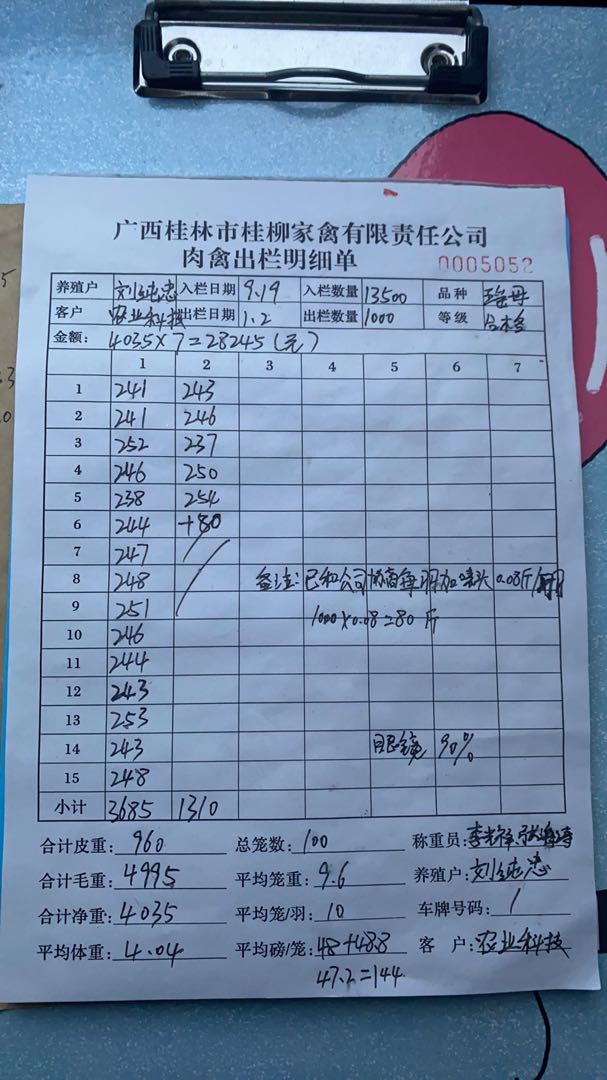 广西桂林市桂柳家禽有限责任公司
肉禽出栏明细单
0005052
养殖户 刘纯忠 入栏日期 9.19 入栏数量 13500 品种
客户 农业科技 出栏日期 1.2 出栏数量 1000 等级 合格
金额: 4035×7=28245(元)
1 2 3 4 5 6 7
1 241 243
2 241 246
3 252 237
4 246 250
5 238 254
6 244 +80
7 247
8 248 备注:已和公司协商每羽加嗉头0.08斤/羽
9 251 1000×0.08=80斤
10 246
11 244
12 243
13 253
14 243 眼镜 90%
15 248
小计 3685 1310
合计皮重: 960 总笼数: 100 称重员:
合计毛重: 4995 平均笼重: 9.6 养殖户: 刘纯忠
合计净重: 4035 平均笼/羽: 10 车牌号码: /
平均体重: 4.04 平均磅/笼: 48+48.8 客 户: 农业科技
47.2=144